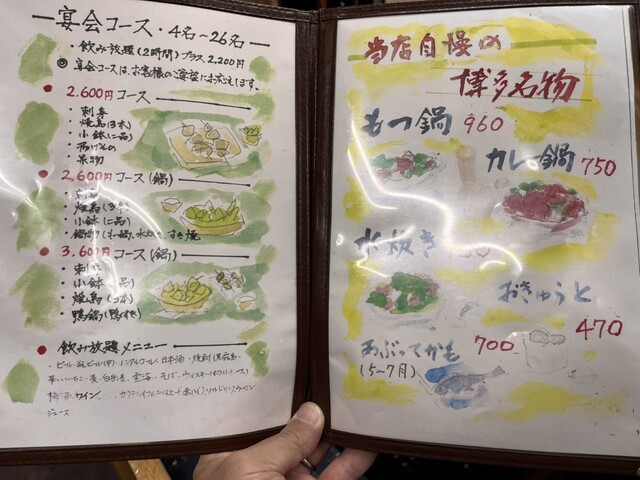 宴会コース・4名～26名
・飲み放題(2時間)プラス2,200円
◎宴会コースは、お客様のご要望にお応えします。
2,600円コース
・刺身
・焼鳥(3本)
・小鉢(一品)
・揚げもの
・果物
2,600円コース(鍋)
・刺身
・焼鳥(3本)
・小鉢(一品)
・鍋物(もつ鍋、水炊き、すき焼
3,600円コース(鍋)
・刺身
・小鉢(一品)
・焼鳥(3本)
・鴨鍋(鴨すき)
飲み放題メニュー
・ビール・瓶ビール(中)・ノンアルコール・日本酒・焼酎(黒霧島・
いいちこ・麦・白岳・雲海・そば・ウィスキー
梅酒・ワイン
ジュース
当店自慢の
博多名物
もつ鍋 960
カレー鍋 750
水炊き
おきゅうと
470
あぶってかも 700
(5～7月)